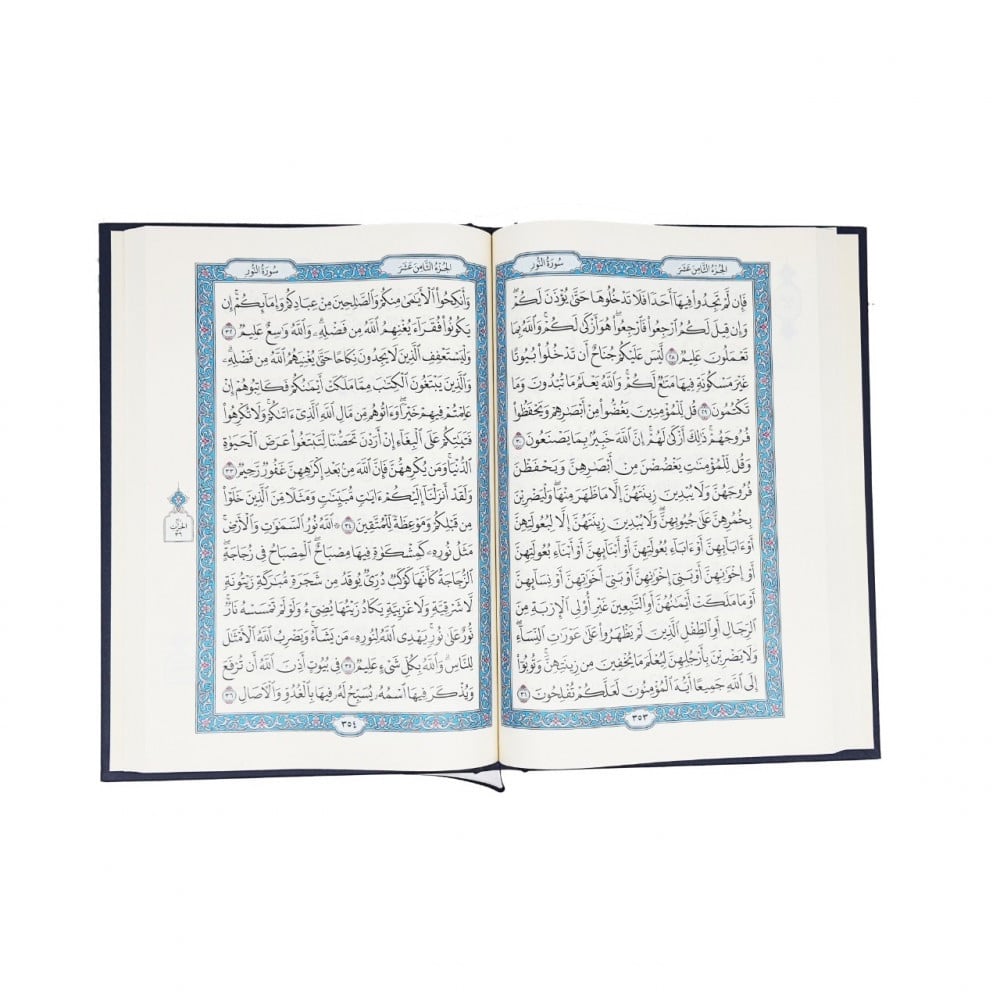 سُورَةُ النُّورِ
الجُزْءُ الثَّامِنَ عَشَرَ
فَإِن لَّمْ تَجِدُوا۟ فِيهَآ أَحَدًا فَلَا تَدْخُلُوهَا حَتَّىٰ يُؤْذَنَ لَكُمْ ۖ
وَإِن قِيلَ لَكُمُ ٱرْجِعُوا۟ فَٱرْجِعُوا۟ ۖ هُوَ أَزْكَىٰ لَكُمْ ۚ وَٱللَّهُ بِمَا
تَعْمَلُونَ عَلِيمٌ ٢٨ لَّيْسَ عَلَيْكُمْ جُنَاحٌ أَن تَدْخُلُوا۟ بُيُوتًا
غَيْرَ مَسْكُونَةٍ فِيهَا مَتَٰعٌ لَّكُمْ ۚ وَٱللَّهُ يَعْلَمُ مَا تُبْدُونَ وَمَا
تَكْتُمُونَ ٢٩ قُل لِّلْمُؤْمِنِينَ يَغُضُّوا۟ مِنْ أَبْصَٰرِهِمْ وَيَحْفَظُوا۟
فُرُوجَهُمْ ۚ ذَٰلِكَ أَزْكَىٰ لَهُمْ ۗ إِنَّ ٱللَّهَ خَبِيرٌۢ بِمَا يَصْنَعُونَ ٣٠
وَقُل لِّلْمُؤْمِنَٰتِ يَغْضُضْنَ مِنْ أَبْصَٰرِهِنَّ وَيَحْفَظْنَ
فُرُوجَهُنَّ وَلَا يُبْدِينَ زِينَتَهُنَّ إِلَّا مَا ظَهَرَ مِنْهَا ۖ وَلْيَضْرِبْنَ
بِخُمُرِهِنَّ عَلَىٰ جُيُوبِهِنَّ ۖ وَلَا يُبْدِينَ زِينَتَهُنَّ إِلَّا لِبُعُولَتِهِنَّ
أَوْ ءَابَآئِهِنَّ أَوْ ءَابَآءِ بُعُولَتِهِنَّ أَوْ أَبْنَآئِهِنَّ أَوْ أَبْنَآءِ بُعُولَتِهِنَّ
أَوْ إِخْوَٰنِهِنَّ أَوْ بَنِىٓ إِخْوَٰنِهِنَّ أَوْ بَنِىٓ أَخَوَٰتِهِنَّ أَوْ نِسَآئِهِنَّ
أَوْ مَا مَلَكَتْ أَيْمَٰنُهُنَّ أَوِ ٱلتَّٰبِعِينَ غَيْرِ أُو۟لِى ٱلْإِرْبَةِ مِنَ
ٱلرِّجَالِ أَوِ ٱلطِّفْلِ ٱلَّذِينَ لَمْ يَظْهَرُوا۟ عَلَىٰ عَوْرَٰتِ ٱلنِّسَآءِ ۖ
وَلَا يَضْرِبْنَ بِأَرْجُلِهِنَّ لِيُعْلَمَ مَا يُخْفِينَ مِن زِينَتِهِنَّ ۚ وَتُوبُوٓا۟
إِلَى ٱللَّهِ جَمِيعًا أَيُّهَ ٱلْمُؤْمِنُونَ لَعَلَّكُمْ تُفْلِحُونَ ٣١
٣٥٣
سُورَةُ النُّورِ
الجُزْءُ الثَّامِنَ عَشَرَ
وَأَنكِحُوا۟ ٱلْأَيَٰمَىٰ مِنكُمْ وَٱلصَّٰلِحِينَ مِنْ عِبَادِكُمْ وَإِمَآئِكُمْ ۚ إِن
يَكُونُوا۟ فُقَرَآءَ يُغْنِهِمُ ٱللَّهُ مِن فَضْلِهِۦ ۗ وَٱللَّهُ وَٰسِعٌ عَلِيمٌ ٣٢
وَلْيَسْتَعْفِفِ ٱلَّذِينَ لَا يَجِدُونَ نِكَاحًا حَتَّىٰ يُغْنِيَهُمُ ٱللَّهُ مِن فَضْلِهِۦ ۗ
وَٱلَّذِينَ يَبْتَغُونَ ٱلْكِتَٰبَ مِمَّا مَلَكَتْ أَيْمَٰنُكُمْ فَكَاتِبُوهُمْ إِنْ
عَلِمْتُمْ فِيهِمْ خَيْرًا ۖ وَءَاتُوهُم مِّن مَّالِ ٱللَّهِ ٱلَّذِىٓ ءَاتَىٰكُمْ ۚ وَلَا تُكْرِهُوا۟
فَتَيَٰتِكُمْ عَلَى ٱلْبِغَآءِ إِنْ أَرَدْنَ تَحَصُّنًا لِّتَبْتَغُوا۟ عَرَضَ ٱلْحَيَوٰةِ
ٱلدُّنْيَا ۚ وَمَن يُكْرِههُّنَّ فَإِنَّ ٱللَّهَ مِنۢ بَعْدِ إِكْرَٰهِهِنَّ غَفُورٌ رَّحِيمٌ ٣٣
وَلَقَدْ أَنزَلْنَآ إِلَيْكُمْ ءَايَٰتٍ مُّبَيِّنَٰتٍ وَمَثَلًا مِّنَ ٱلَّذِينَ خَلَوْا۟
مِن قَبْلِكُمْ وَمَوْعِظَةً لِّلْمُتَّقِينَ ٣٤ ۞ ٱللَّهُ نُورُ ٱلسَّمَٰوَٰتِ وَٱلْأَرْضِ ۚ
مَثَلُ نُورِهِۦ كَمِشْكَوٰةٍ فِيهَا مِصْبَاحٌ ۖ ٱلْمِصْبَاحُ فِى زُجَاجَةٍ ۖ
ٱلزُّجَاجَةُ كَأَنَّهَا كَوْكَبٌ دُرِّىٌّ يُوقَدُ مِن شَجَرَةٍ مُّبَٰرَكَةٍ زَيْتُونَةٍ
لَّا شَرْقِيَّةٍ وَلَا غَرْبِيَّةٍ يَكَادُ زَيْتُهَا يُضِىٓءُ وَلَوْ لَمْ تَمْسَسْهُ نَارٌ ۚ
نُّورٌ عَلَىٰ نُورٍ ۗ يَهْدِى ٱللَّهُ لِنُورِهِۦ مَن يَشَآءُ ۚ وَيَضْرِبُ ٱللَّهُ ٱلْأَمْثَٰلَ
لِلنَّاسِ ۗ وَٱللَّهُ بِكُلِّ شَىْءٍ عَلِيمٌ ٣٥ فِى بُيُوتٍ أَذِنَ ٱللَّهُ أَن تُرْفَعَ
وَيُذْكَرَ فِيهَا ٱسْمُهُۥ يُسَبِّحُ لَهُۥ فِيهَا بِٱلْغُدُوِّ وَٱلْءَاصَالِ ٣٦
٣٥٤
الحزب
٣٦